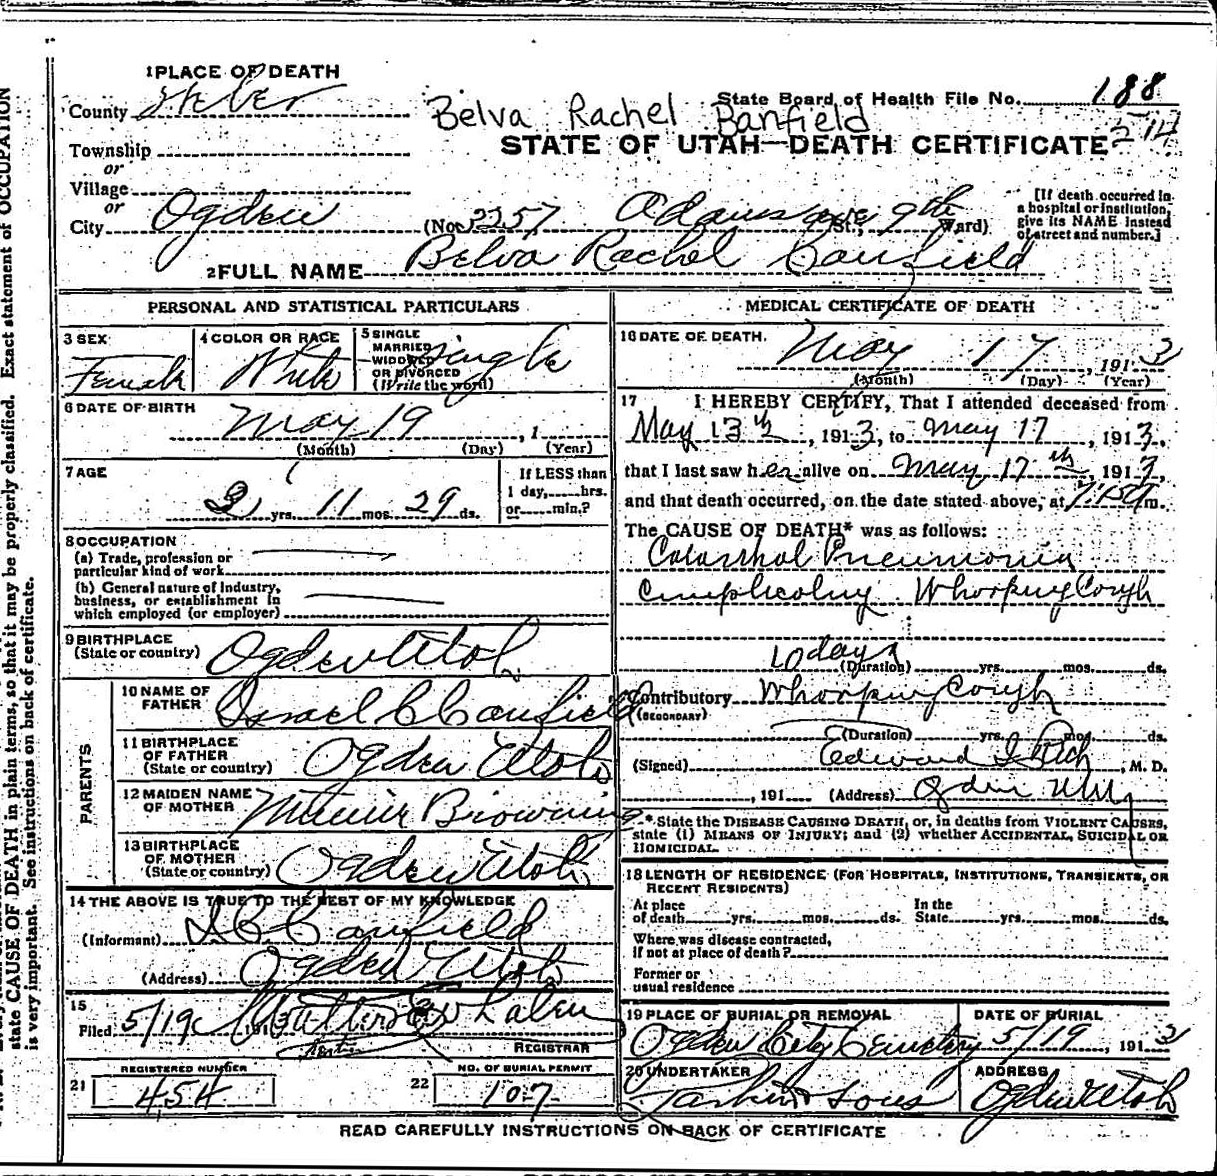 1 PLACE OF DEATH
County Weber
State Board of Health File No. 188
Belva Rachel Banfield
214
Township
STATE OF UTAH—DEATH CERTIFICATE
or
Village
or
City Ogden (No. 2257 Adams ave St., 9th Ward)
[If death occurred in a hospital or institution, give its NAME instead of street and number.]
2 FULL NAME Belva Rachel Canfield
PERSONAL AND STATISTICAL PARTICULARS
3 SEX Female
4 COLOR OR RACE White
5 SINGLE MARRIED WIDOWED OR DIVORCED (Write the word) Single
6 DATE OF BIRTH May 19, 1
(Month) (Day) (Year)
7 AGE
yrs. 11 mos. 29 ds.
If LESS than 1 day, hrs. or min.?
8 OCCUPATION
(a) Trade, profession or particular kind of work
(b) General nature of industry, business, or establishment in which employed (or employer)
9 BIRTHPLACE (State or country) Ogden Utah
PARENTS
10 NAME OF FATHER Israel C Canfield
11 BIRTHPLACE OF FATHER (State or country) Ogden Utah
12 MAIDEN NAME OF MOTHER Minnie Browning
13 BIRTHPLACE OF MOTHER (State or country) Ogden Utah
14 THE ABOVE IS TRUE TO THE BEST OF MY KNOWLEDGE
(Informant) I C Canfield
(Address) Ogden Utah
15
Filed 5/19 191
REGISTRAR
REGISTERED NUMBER
21 454
NO. OF BURIAL PERMIT
22 107
MEDICAL CERTIFICATE OF DEATH
16 DATE OF DEATH.
May 17, 1913
(Month) (Day) (Year)
17 I HEREBY CERTIFY, That I attended deceased from
May 13th, 1913, to May 17, 1913,
that I last saw her alive on May 17th, 1913,
and that death occurred, on the date stated above, at m.
The CAUSE OF DEATH* was as follows:
Catarrhal Pneumonia
complicating Whooping Cough
10 days
(Duration) yrs. mos. ds.
Contributory Whooping Cough
(SECONDARY)
(Duration) yrs. mos. ds.
(Signed) Edward I Rich, M. D.
, 191 (Address) Ogden Utah
* State the DISEASE CAUSING DEATH, or, in deaths from VIOLENT CAUSES,
state (1) MEANS OF INJURY; and (2) whether ACCIDENTAL, SUICIDAL OR
HOMICIDAL.
18 LENGTH OF RESIDENCE (FOR HOSPITALS, INSTITUTIONS, TRANSIENTS, OR
RECENT RESIDENTS)
At place of death yrs. mos. ds. In the State yrs. mos. ds.
Where was disease contracted,
if not at place of death?
Former or
usual residence
19 PLACE OF BURIAL OR REMOVAL Ogden City Cemetery
DATE OF BURIAL 5/19, 1913
20 UNDERTAKER Larkin & Sons
ADDRESS Ogden Utah
READ CAREFULLY INSTRUCTIONS ON BACK OF CERTIFICATE
state CAUSE OF DEATH in plain terms, so that it may be properly classified. Exact statement of OCCUPATION
is very important. See instructions on back of certificate.